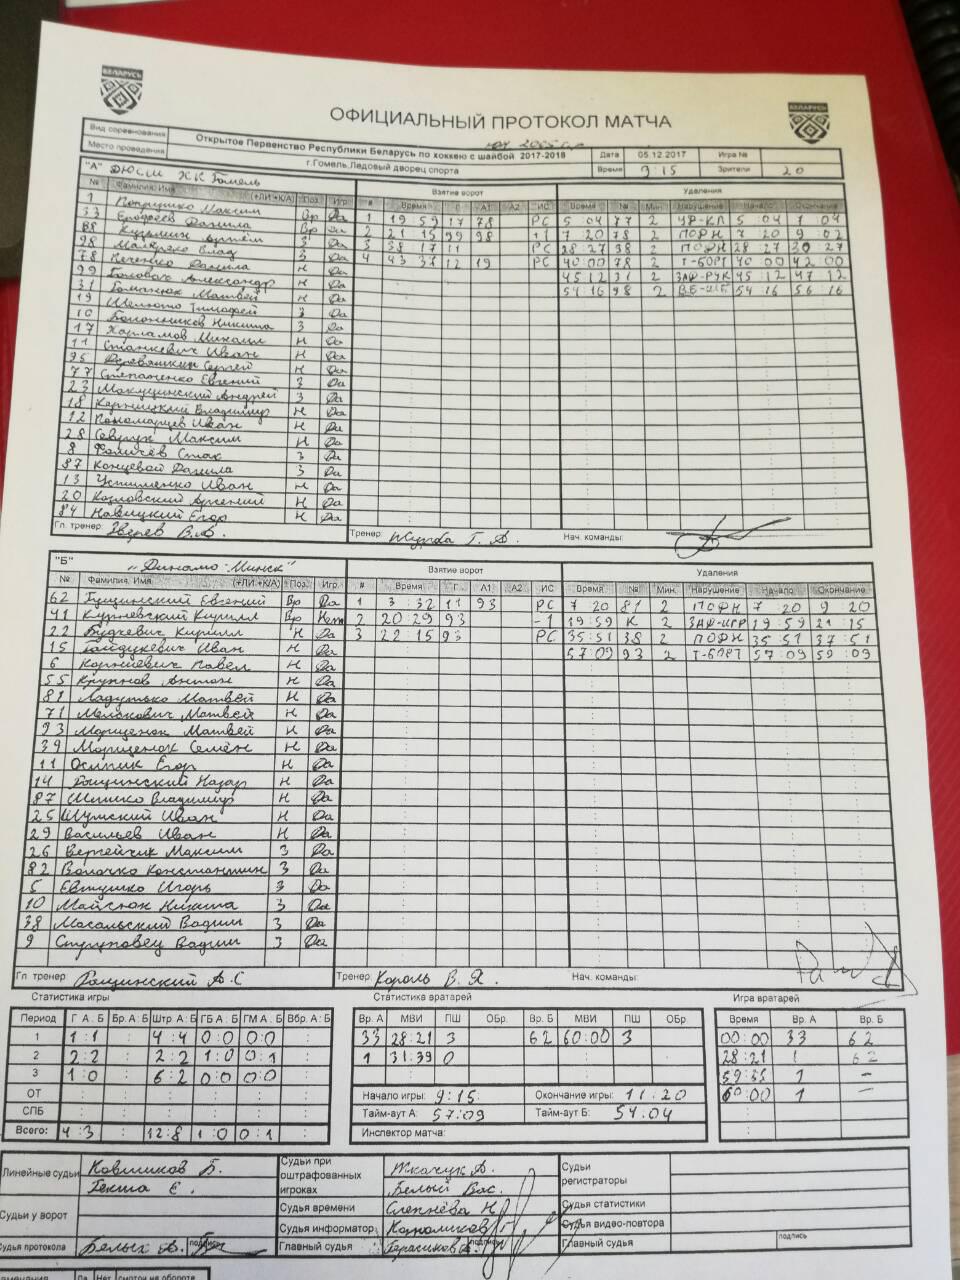 БЕЛАРУСЬ
БЕЛАРУСЬ
ОФИЦИАЛЬНЫЙ ПРОТОКОЛ МАТЧА
Вид соревнования Открытое Первенство Республики Беларусь по хоккею с шайбой 2017-2018 Дата 05.12.2017 Игра №
Место проведения г.Гомель,Ледовый дворец спорта Время 9:15 Зрители 20
"А" ДЮСШ ХК Гомель Взятие ворот Удаления
№ Фамилия, Имя (+ЛИ +К/А) Поз Игр # Время Г А1 А2 ИС Время № Мин. Нарушение Начало Окончание
1 Максим Вр Да 1 19:59 17 78 РС 5:04 77 2 5:04 7:04
33 Ерофеев Данила Вр Да 2 21:15 99 98 +1 7:20 78 2 ПОРН 7:20 9:02
88 Кузьмин Артём З Да 3 38:17 11 РС 28:27 98 2 ПОДН 28:27 30:27
98 Влад З Да 4 43:37 12 19 РС 40:00 78 2 Т-БОРТ 40:00 42:00
78 Кеченко Данила Н Да 45:12 31 2 ЗАД-РУК 45:12 47:12
99 Головач Александр Н Да 54:16 98 2 54:16 56:16
31 Гоманюк Матвей Н Да
19 Шелюто Тимофей З Да
10 Болонников Никита З Да
17 Харламов Михаил Н Да
11 Станкевич Иван Н Да
95 Деревяшкин Сергей Н Да
77 Степаненко Евгений З Да
23 Макущинский Андрей З Да
18 Карницкий Владимир Н Да
12 Пономарцев Иван Н Да
28 Севрук Максим Н Да
8 Фомичёв Стас З Да
87 Концевой Данила З Да
13 Устименко Иван Н Да
20 Козловский Арсений Н Да
84 Навицкий Егор Н Да
Гл. тренер: Зверев В.А. Тренер: Журба Г. А. Нач. команды:
"Б" „Динамо-Минск" Взятие ворот Удаления
№ Фамилия, Имя (+ЛИ +К/А) Поз. Игр. # Время Г А1 А2 ИС Время № Мин. Нарушение Начало Окончание
62 Гущинский Евгений Вр Да 1 3:32 11 93 РС 7:20 81 2 ПОРН 7:20 9:20
41 Курневский Кирилл Вр Нет 2 20:29 93 -1 19:59 К 2 ЗАД-ИГР 19:59 21:15
22 Будкевич Кирилл Н Да 3 22:15 93 РС 35:51 38 2 ПОДН 35:51 37:51
15 Гайдукевич Иван Н Да 57:09 93 2 Т-БОРТ 57:09 59:09
6 Корниевич Павел Н Да
55 Крупнов Антон Н Да
81 Ладутько Матвей Н Да
71 Малакович Матвей Н Да
93 Марценюк Матвей Н Да
39 Марценюк Семён Н Да
11 Осипик Егор Н Да
14 Гощинский Назар Н Да
87 Шишко Владимир Н Да
25 Шумский Иван Н Да
29 Васильев Иван Н Да
26 Вергейчик Максим З Да
82 Волочко Константин З Да
5 Евтушко Игорь З Да
10 Майсюк Никита З Да
38 Масальский Вадим З Да
9 Струповец Вадим З Да
Гл. тренер: Гощинский А.С Тренер: Король В. Я. Нач. команды:
Статистика игры Статистика вратарей Игра вратарей
Период Г А : Б Бр. А : Б Штр А : Б ГБ А : Б ГМ А : Б Вбр. А : Б Вр. А МВИ ПШ ОБр. Вр. Б МВИ ПШ ОБр Время Вр. А Вр. Б
1 1:1 4:4 0:0 0:0 33 28:21 3 62 60:00 3 00:00 33 62
2 2:2 2:2 1:0 0:1 1 31:39 0 28:21 1 62
3 1:0 6:2 0:0 0:0 59:35 1 –
ОТ Начало игры: 9:15 Окончание игры: 11:20 60:00 1 –
СПБ Тайм-аут А: 57:09 Тайм-аут Б: 54:04
Всего: 4:3 12:8 1:0 0:1 Инспектор матча:
Линейные судьи Ковшиков Б. Судьи при оштрафованных игроках Ткачук А. Судьи регистраторы
Гекша Е. Белый Вас.
Судьи у ворот Судья времени Слепнёва Н Судья статистики
Судья информатор Судья видео-повтора
Судья протокола Белых А. подпись Главный судья Герасимов А. подпись Главный судья подпись
Да Нет смотри на обороте